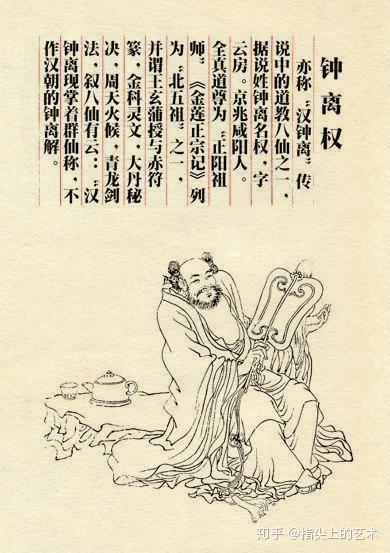 钟离权
亦称“汉钟离”传
说中的道教八仙之一，
据说姓钟离名权，字
云房。京兆咸阳人。
全真道尊为“正阳祖
师”《金莲正宗记》列
为“北五祖”之一，
并谓王玄蒲授与赤符
篆，金科灵文，大丹秘
决，周天火候，青龙剑
法，叙八仙有云：“汉
钟离现掌着群仙称，不
作汉朝的钟离解。
知乎 @指尖上的艺术